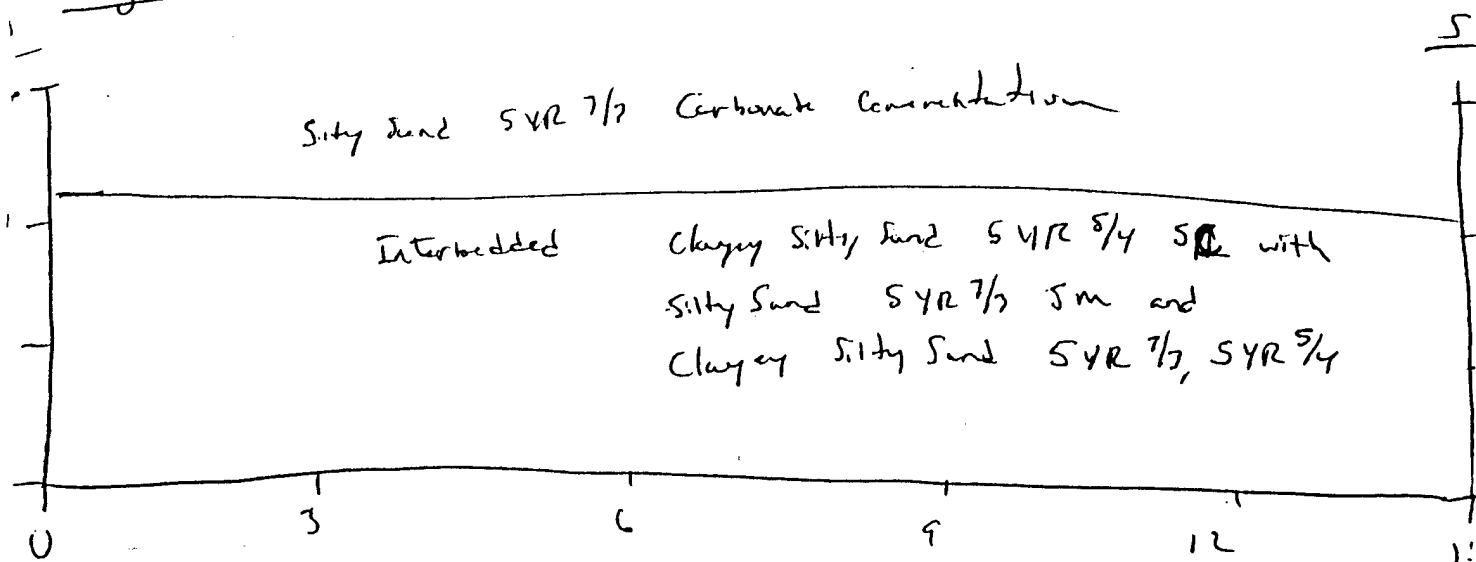 S
Silty Sand 5 YR 7/3 Carbonate Cementation
Interbedded Clayey Silty Sand 5 YR 5/4 with
Silty Sand 5 YR 7/3 SM and
Clayey Silty Sand 5 YR 7/3, 5 YR 5/4
0 3 6 9 12